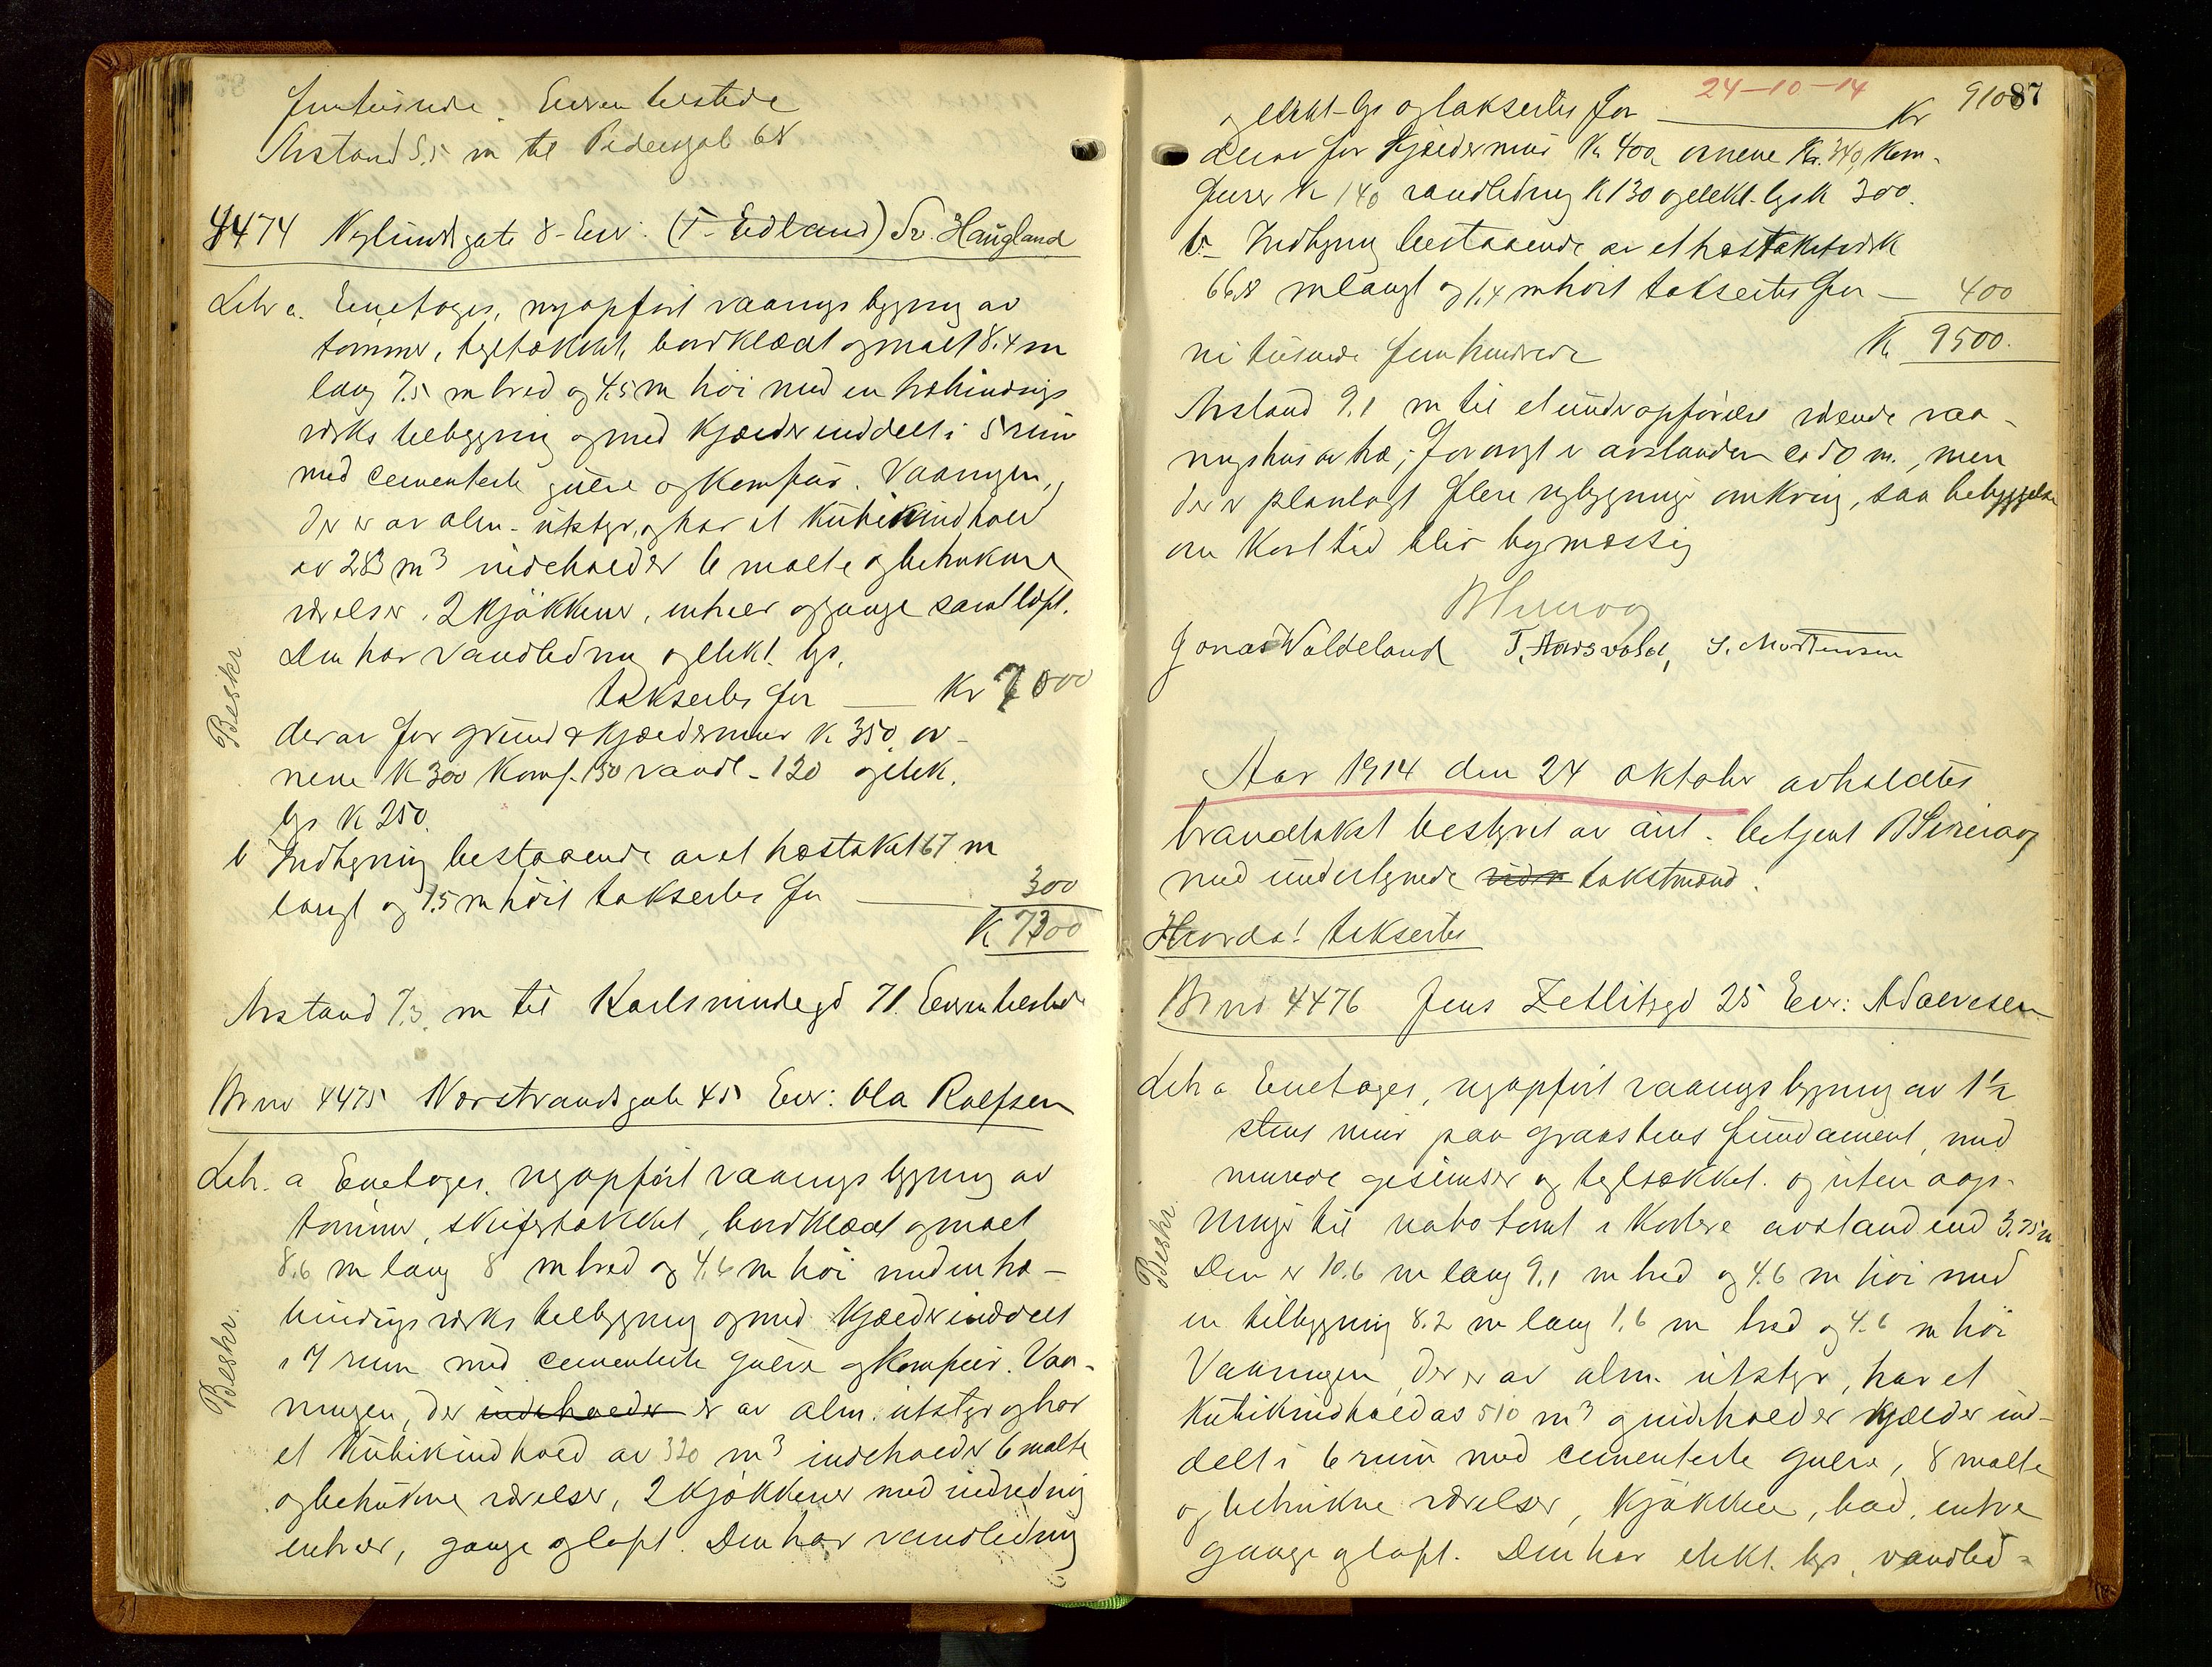 femtusinde. Eieren tilstede
Avstand 5.5 m til Pedersgab 68
4474 Nylundsgate 8 - Eier: (T. Edland) Sv. Haugland
Litr a. Enetages, nyopført vaanings bygning av
tømmer, tegltækket, bordklædt og malt 8.4 m
lang 7.5 m bred og 4.5 m høi med en træbindings
verks tilbygning og med kjælder inddelt i 5 rum
med cementerte gulve og komfur. Vaaningen,
der er av alm. utstyr, og har et kubikindhold
av 283 m3 indeholder 6 malte og betrukne
værelser, 2 kjøkkener, entreer og gange samt loft.
Den har vandledning og elekt. lys.
taksertes for — Kr 7000
Beskr
derav for grund & kjældermur K 350, ov-
nene K 300 Komf. 150 vandl - 120 og elek.
lys K 250.
b Indhegning bestaaende av et træstaket 67 m
langt og 1.5 m høit taksertes for — 300
K 7300
Avstand 7.3 m til Karlsmindegd 71. Eieren tilstede
Br no 4475 Norstrandsgate 45 Eier: Ola Rolfsen
Litr. a Enetages, nyopført vaanings bygning av
tømmer, skifertækket, bordklædt og malt
8.6 m lang 8 m bred og 4.6 m høi med en træ-
bindings verks tilbygning og med kjælder inddelt
i 7 rum med cementerte gulve og komfur. Vaa-
ningen, der indeholder er av alm. utstyr og har
et kubikindhold av 320 m3 indeholder 6 malte
og betrukne værelser, 2 kjøkkener med indredning
entreer, gange og loft. Den har vandledning
Beskr.
24-10-14
87
og elekt. lys og taksertes for — Kr 9100
derav for kjældermur K 400, ovnene Kr. 340, kom-
furer K 140 vandledning K 130 og elekt. lys K 300.
b. Indhegning bestaaende av et træstaketverk
66,8 m langt og 1,4 m høit takseertes for — 400
ni tusinde fem hundrede K 9500.
Avstand 9,1 m til et under opførelse værende vaa-
ningshus av træ; forøvrigt er avstanden ca 50 m., men
der er planlagt flere nybygninger omkring, saa bebyggelsen
om kort tid blir bymæssig
Jonas Woldeland T. Aarsvold, S. Mortensen
Aar 1914 den 24 oktober avholdtes
brandtakst bestyret av aut. betjent
med undertegnede takstmænd.
Hvorda! taksertes
Br no 4476 Jens Zetlitzgd 25 Eier: A Salvesen
Litr a Enetages, nyopført vaanings bygning av 1½
stens mur paa graastens fundament, med
murede gesimser og tegltækket. og uten aap-
ninger til nabo tomt i kortere avstand end 3.75 m
Den er 10.6 m lang 9,1 m bred og 4.6 m høi med
en tilbygning 8.2 m lang 1,6 m bred og 4.6 m høi
Vaaningen, der er av alm. utstyr, har et
kubikindhold as 510 m3 og indeholder kjælder ind-
delt i 6 rum med cementerte gulve, 8 malte
og betrukne værelser, kjøkken, bad, entre
gange og loft. Den har elekt. lys, vandled-
Beskr